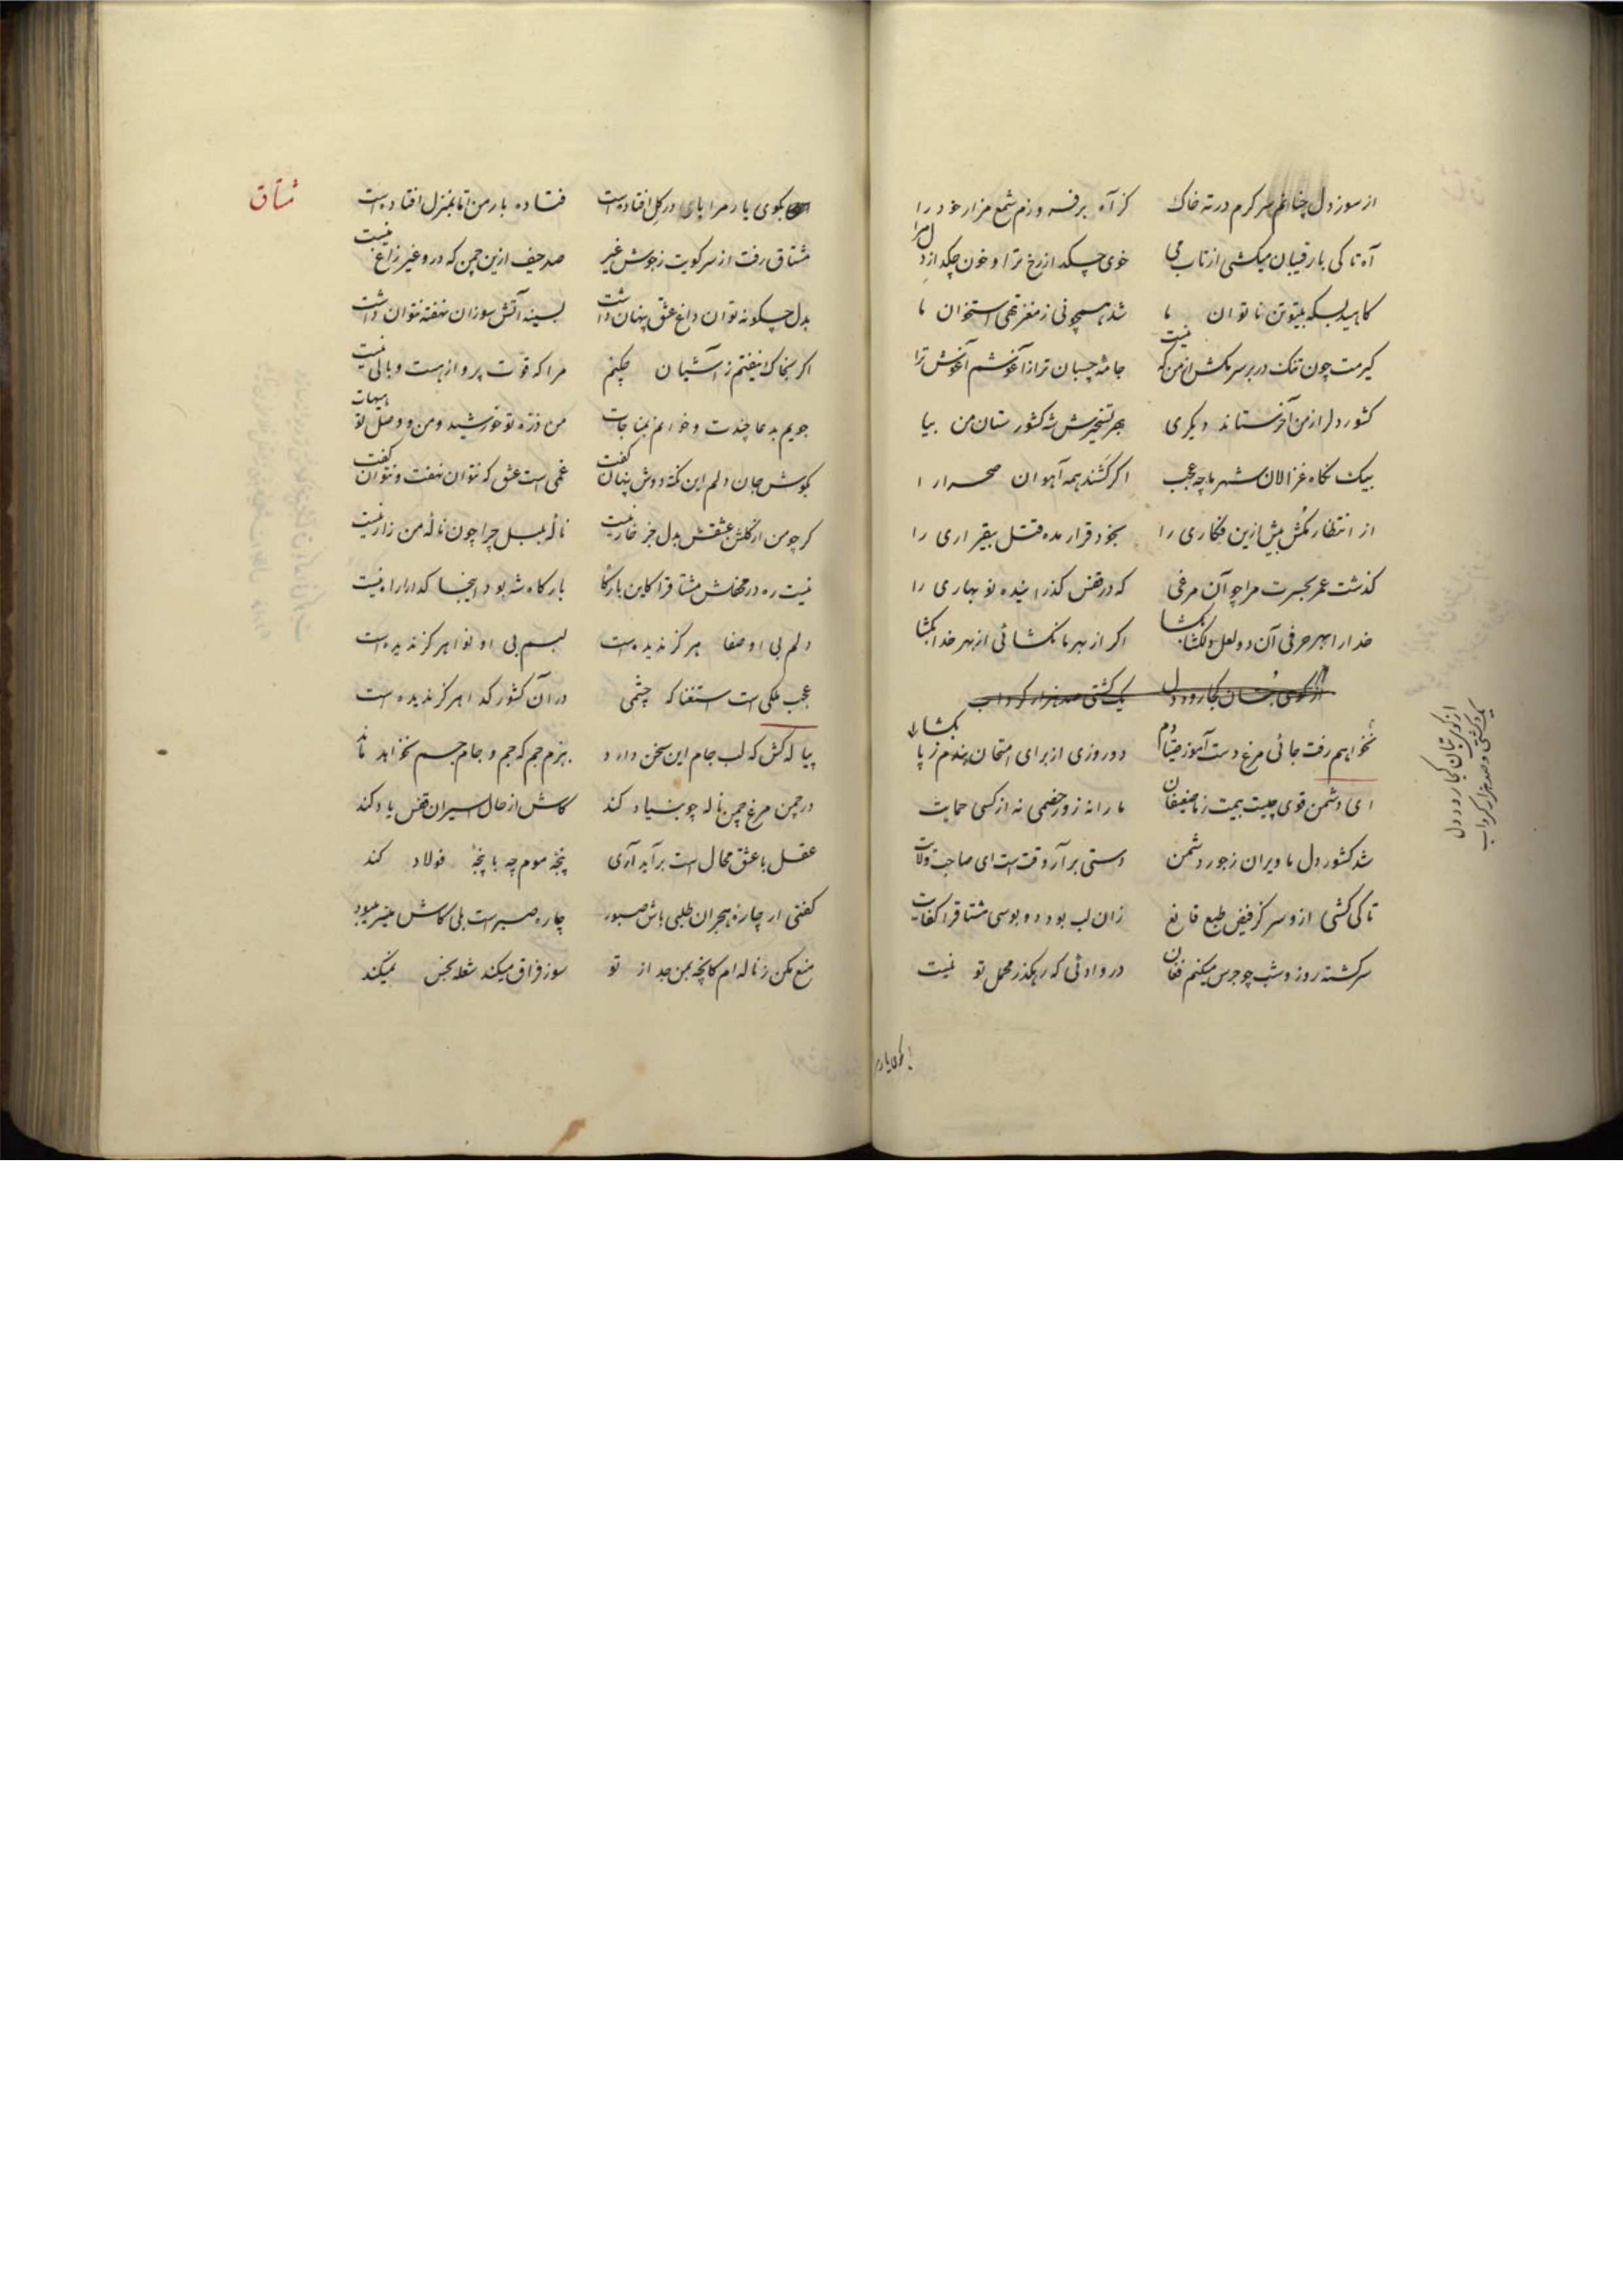 از سوز دل چنانم سرگرم در ته خاک کز آه برفروزم شمع مزار خود را
آه تا کی با رقیبان میکشی از تاب می خوی چکد از رخ ترا و خون چکد از دل مرا
کاهید بسکه بیتو تن ناتوان ما شد همچو نی ز مغز تهی استخوان ما
گیرمت چون تنک در بر سر مکش از من که نیست جامه چسبان تر از آغوشم آغوش ترا
کشور دل از من آخر ستاند دیگری بهر تسخیرش شه کشور ستان من بیا
بیک نگاه غزالان شهر ما چه عجب اگر کشند همه آهوان صحرا را
از انتظار مکش بیش ازین فکاری را بخود قرار مده قتل بیقراری را
گذشت عمر بحسرت مرا چو آن مرغی که در قفس گذرانیده نو بهاری را
خدا را بهر حرفی آن دو لعل دلگشا بگشا اگر از بهر ما نگشائی از بهر خدا بگشا
از کوی بتان کجا رود دل یک کشتی و صد هزار گرداب
نخواهم رفت جائی مرغ دست آموز صیادم دو روزی از برای امتحان بندم ز پا بگشا
ای دشمن قوی چیست بیمت ز ما ضعیفان ما را نه زور خصمی نه از کسی حمایت
شد کشور دل ما ویران ز جور دشمن دستی برآر وقت است ای صاحب ولایت
تا کی کشی ازو سر کز فیض طبع قانع زان لب بود دو بوسی مشتاق را کفایت
سرگشته روز و شب چو جرس میکنم فغان در وادئی که رهگذر محمل تو نیست
بکوی یار
از کوی بتان کجا رود دل
یک کشتی و صد هزار گرداب
مشتاق
بکوی یار مرا پای در گل افتاده است فتاده بار من اما بمنزل افتاده است
مشتاق رفت از سر کویت ز جوش غیر صد حیف ازین چمن که درو غیر زاغ نیست
بدل چگونه توان داغ عشق پنهان داشت بسینه آتش سوزان نهفته نتوان داشت
اگر بخاک نیفتم ز آشیان چکنم مرا که قوت پرواز هست و بالی نیست
جویم بدعا چندت و خوانم بمناجات من ذره تو خورشید و من و وصل تو هیهات
بگوش جان دلم این نکته دوش پنهان گفت غمی است عشق که نتوان نهفت و نتوان گفت
گر چو من از گلشن عشقش بدل جز خار نیست نالهٔ بلبل چرا چون نالهٔ من زار نیست
نیست ره در محفلش مشتاق را کاین بارگاه بارگاه شه بود اینجا گدا را راه نیست
دلم بی او صفا هرگز ندیده است لبم بی او نوا هرگز ندیده است
عجب ملکی است استغنا که چشمی در آن کشور گدا هرگز ندیده است
پیاله کش که لب جام این سخن دارد ببزم جم که جم و جام جم نخواهد ماند
در چمن مرغ چمن ناله چو بنیاد کند کاش از حال اسیران قفس یاد کند
عقل با عشق محال است برآید آری پنجهٔ موم چه با پنجهٔ فولاد کند
گفتی ار چارهٔ هجران طلبی باش صبور چاره صبر است بلی کاش میسر میبود
منع مکن ز ناله ام کانچه بمن جدا از تو سوز فراق میکند شعله بخس نمیکند